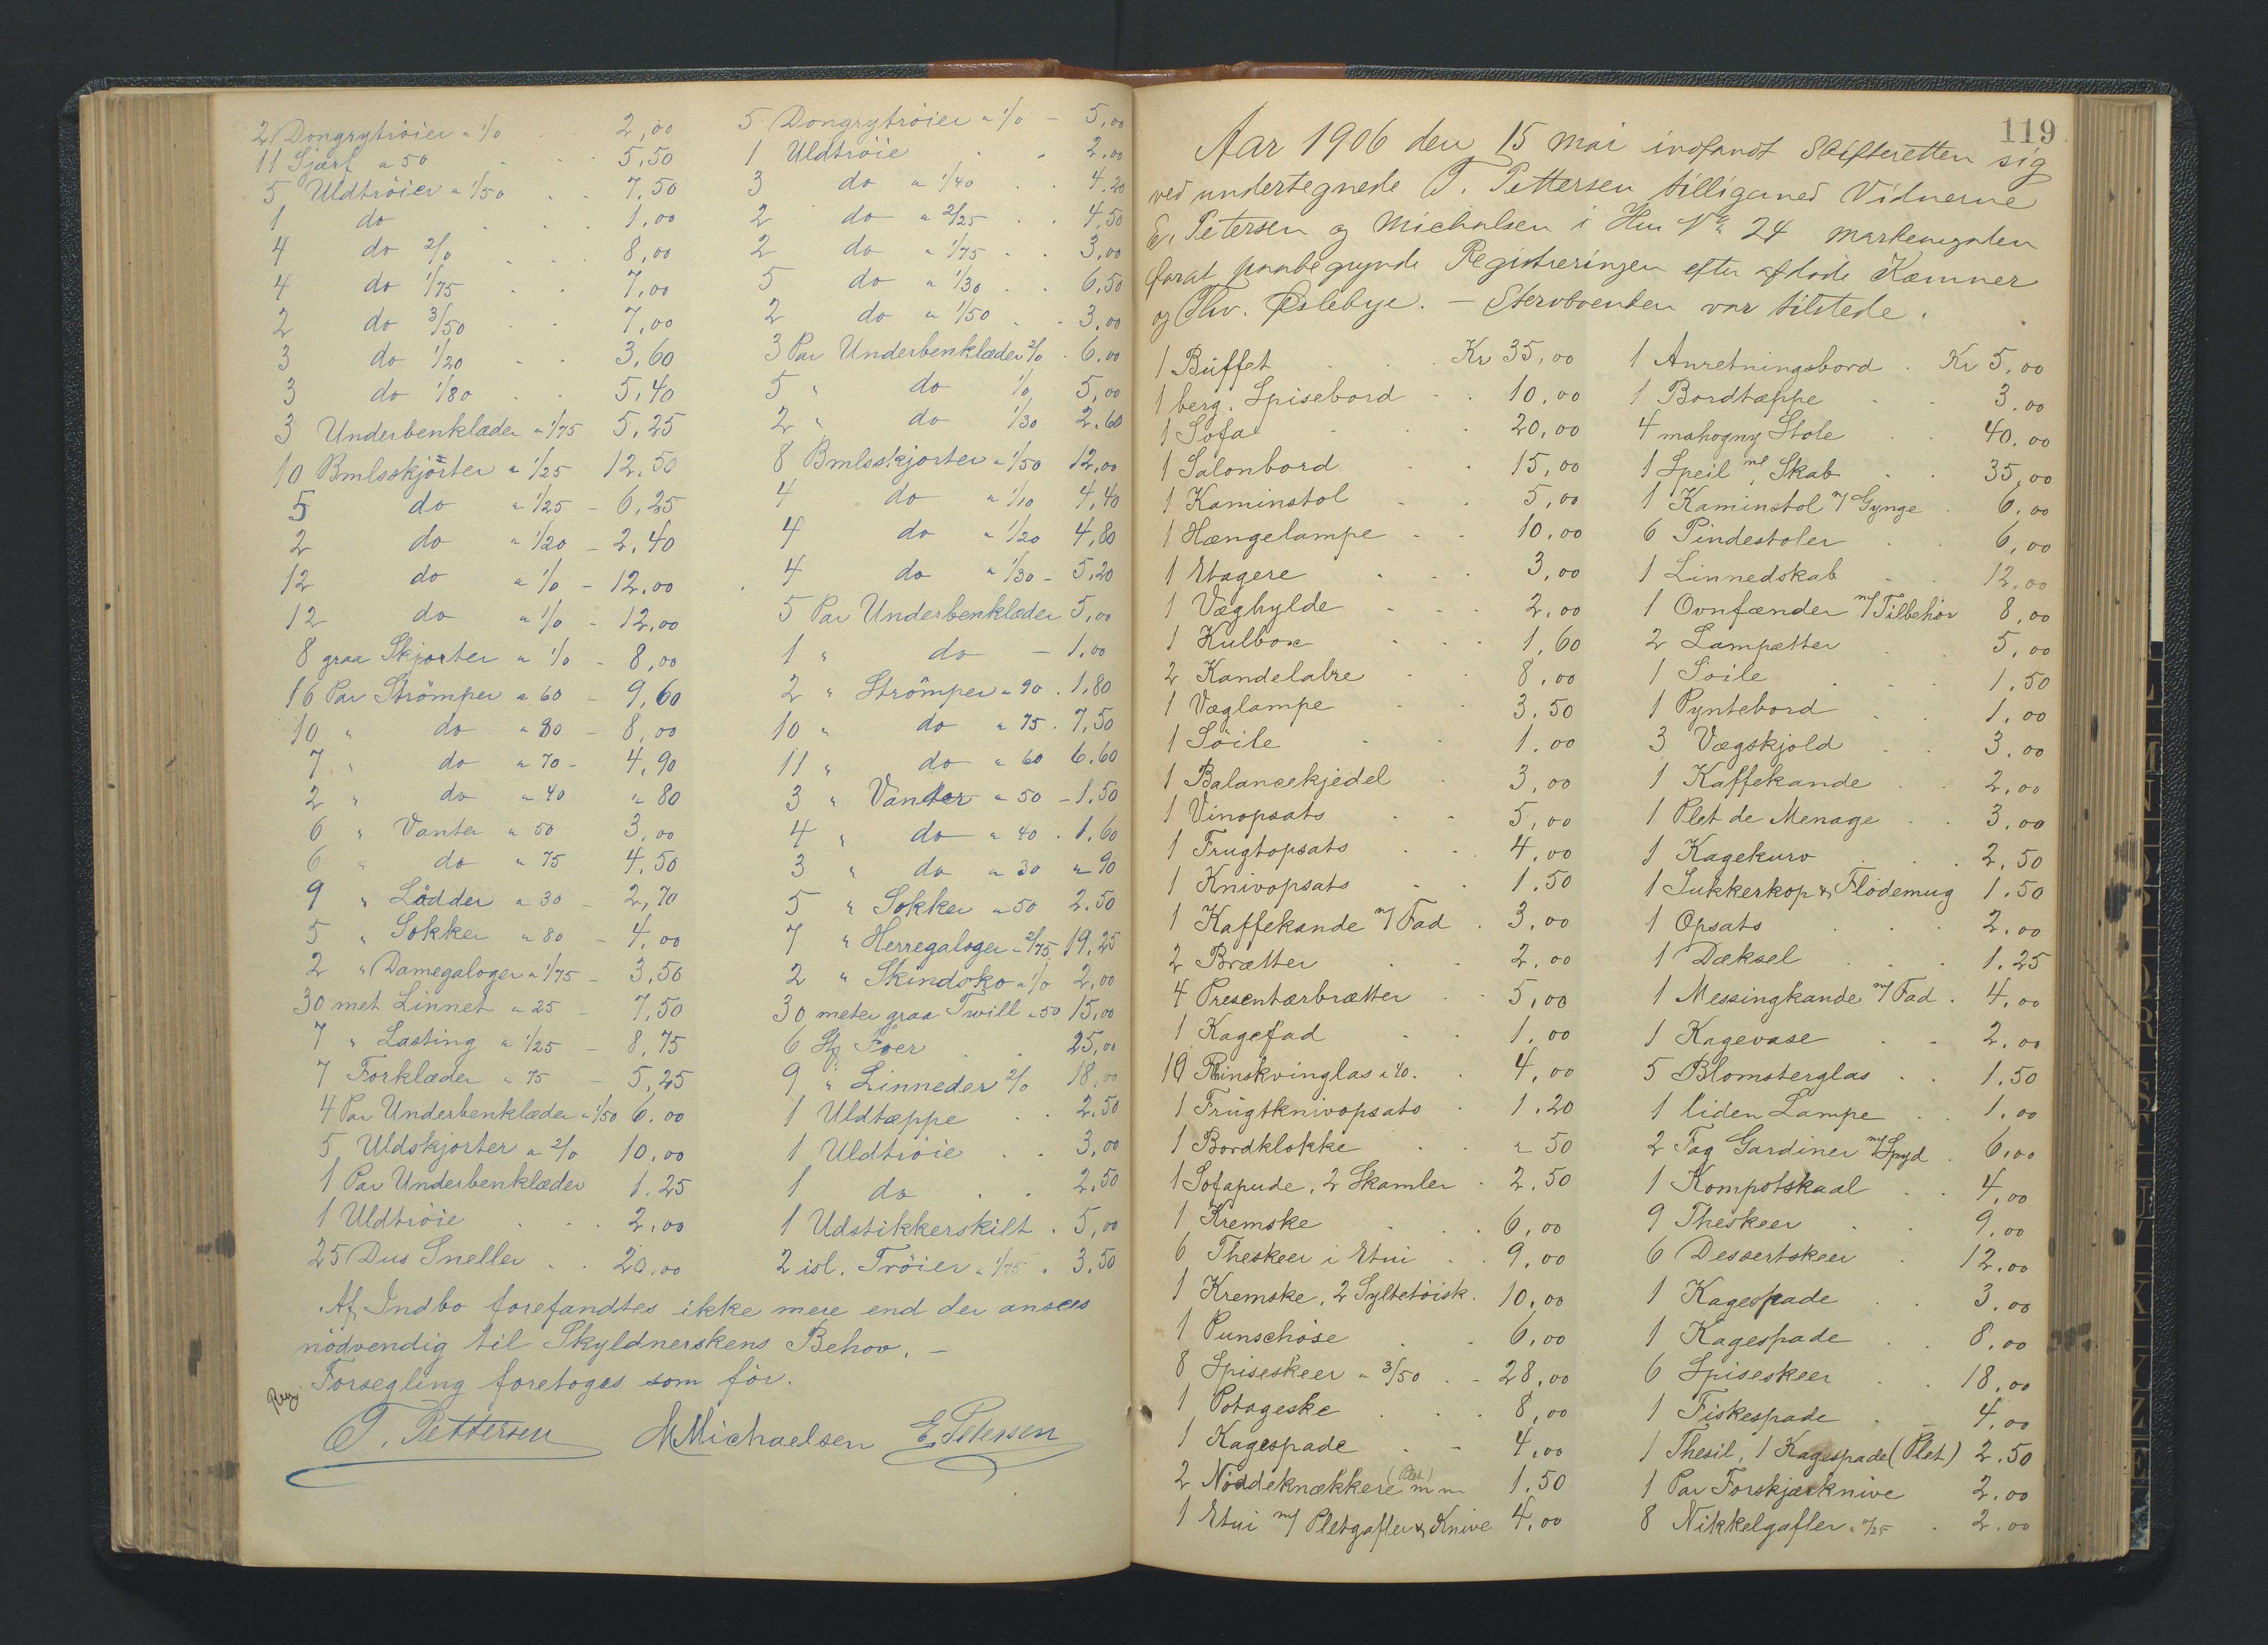 2 Dongrytröier a 1/0 2,00
11 Sjærf a 50 5,50
5 Uldtröier a 1/50 7,50
1 do 1,00
4 do 2/0 8,00
4 do 1/75 7,00
2 do 3/50 7,00
3 do 1/20 3,60
3 do 1/80 5,40
3 Underbenklæder a 1/75 5,25
10 Bmlsskjörter a 1/25 12,50
5 do a 1/25 - 6,25
2 do a 1/20 - 2,40
12 do a 1/0 - 12,00
12 do a 1/0 - 12,00
8 graa Skjorter a 1/0 - 8,00
16 Par Strömper a 60 - 9,60
10 " do a 80 - 8,00
7 " do a 70 - 4,90
2 " do a 40 " 80
6 " Vanter a 50 3,00
6 " do a 75 4,50
9 " Lådder a 30 - 2,70
5 " Sokker a 80 - 4,00
2 " Damegaloger a 1/75 - 3,50
30 met Linnet a 25 - 7,50
7 " Lasting a 1/25 - 8,75
7 Forklæder a 75 - 5,25
4 Par Underbenklæder a 1/50 6,00
5 Uldskjorter a 2/0 10,00
1 Par Underbenklæder 1.25
1 Uldtröie 2,00
25 Dus Sneller 20,00
5 Dongrytröier a 1/0 - 5,00
1 Uldtröie 2,00
3 do a 1/40 4,20
2 do a 2/25 4,50
2 do a 1/75 3,00
5 do a 1/30 6,50
2 do a 1/50 3,00
3 Par Underbenklæder 2/0 6,00
5 " do 1/0 5,00
2 " do 1/30 2.60
8 Bmlsskjorter a 1/50 12,00
4 do a 1/10 4,40
4 do a 1/20 4,80
4 do a 1/30 - 5,20
5 Par Underbenklæder 5,00
1 " do - 1,00
2 " Strömper a 90 . 1,80
10 " do a 75 . 7,50
11 " do a 60 6.60
3 " Vanter a 50 - 1,50
4 " do a 40 . 1,60
3 " do a 30 " 90
5 " Sokker a 50 2.50
7 " Herregaloger a 2/75 19,25
2 " Skindsko a 1/0 2,00
30 meter graa Twill a 50 15,00
6 Foer 25,00
9 " Linneder 2/0 18,00
1 Uldtæppe 2.50
1 Uldtröie 3,00
1 do 2,50
1 Udstikkerskilt . 5,00
2 isl. Tröier a 1/75 . 3,50
Af Indbo forefandtes ikke mere end der ansees
nödvendig til Skyldnerskens Behov. -
Forsegling foretoges som för.
Reg.
T. Pettersen M Michaelsen E. Petersen
119
Aar 1906 den 15 mai indfandt Skifteretten sig
ved undertegnede T. Pettersen tilligemed Vidnerne
E. Petersen og Michalsen i Hus No 24 Markevejen
forat paabegynde Registreringen efter afdöde Kæmner
og Thv. Oslebye. - Stervboenken var tilstede.
1 Buffet Kr 35,00
1 berg. Spisebord 10,00
1 Sofa 20,00
1 Salonbord 15,00
1 Kaminstol 5,00
1 Hængelampe 10,00
1 Etagere 3,00
1 Væghylde 2,00
1 Kulbox 1,60
2 Kandelabre 8,00
1 Væglampe 3.50
1 Söile 1,00
1 Balancekjedel 3,00
1 Vinopsats 5,00
1 Frugtopsats 4,00
1 Knivopsats 1.50
1 Kaffekande m/ Fad . 3,00
2 Brætter 2,00
4 Presentærbrætter 5,00
1 Kagefad 1,00
10 Rhinskvinglas a 40 . 4,00
1 Frugtknivopsats 1.20
1 Bordklokke " 50
1 Sofapude, 2 Skamler 2.50
1 Kremske 6,00
6 Theskeer i Etui 9,00
1 Kremske, 2 Syltetöisk. 10,00
1 Punschöse 6,00
8 Spiseskeer a 3/50 - 28,00
1 Potageske 8,00
1 Kagespade 4,00
2 Nöddeknækkere (Plet) m m 1.50
1 Etui m/ Pletgafler & Knive 4,00
1 Anretningsbord . Kr 5,00
1 Bordtæppe 3,00
4 mahogny Stole 40,00
1 Speil m/ Skab 35,00
1 Kaminstol m/ Gynge 6,00
6 Pindestoler 6,00
1 Linnedskab 12,00
1 Ovnfænder m/ Tilbehör 8,00
2 Lampetter 5,00
1 Söile 1.50
1 Pyntebord 1,00
3 Vægskjold 3,00
1 Kaffekande 2,00
1 Plet de Menage 3,00
1 Kagekurv 2,50
1 Sukkerkop & Flödemug 1.50
1 Opsats 2,00
1 Dæksel 1.25
1 Messingkande m/ Fad . 4,00
1 Kagevase 2,00
5 Blomsterglas 1,50
1 liden Lampe 1,00
2 Fag Gardiner m/ Spyd . 6,00
1 Kompotskaal 4,00
9 Theskeer 9,00
6 Dessertskeer 12,00
1 Kagespade 3,00
1 Kagespade 8,00
6 Spiseskeer 18,00
1 Fiskespade 4,00
1 Thesil, 1 Kagespade (Plet) 2.50
1 Par Forskjærknive 2,00
8 Nikkelgafler a "/25 2,00